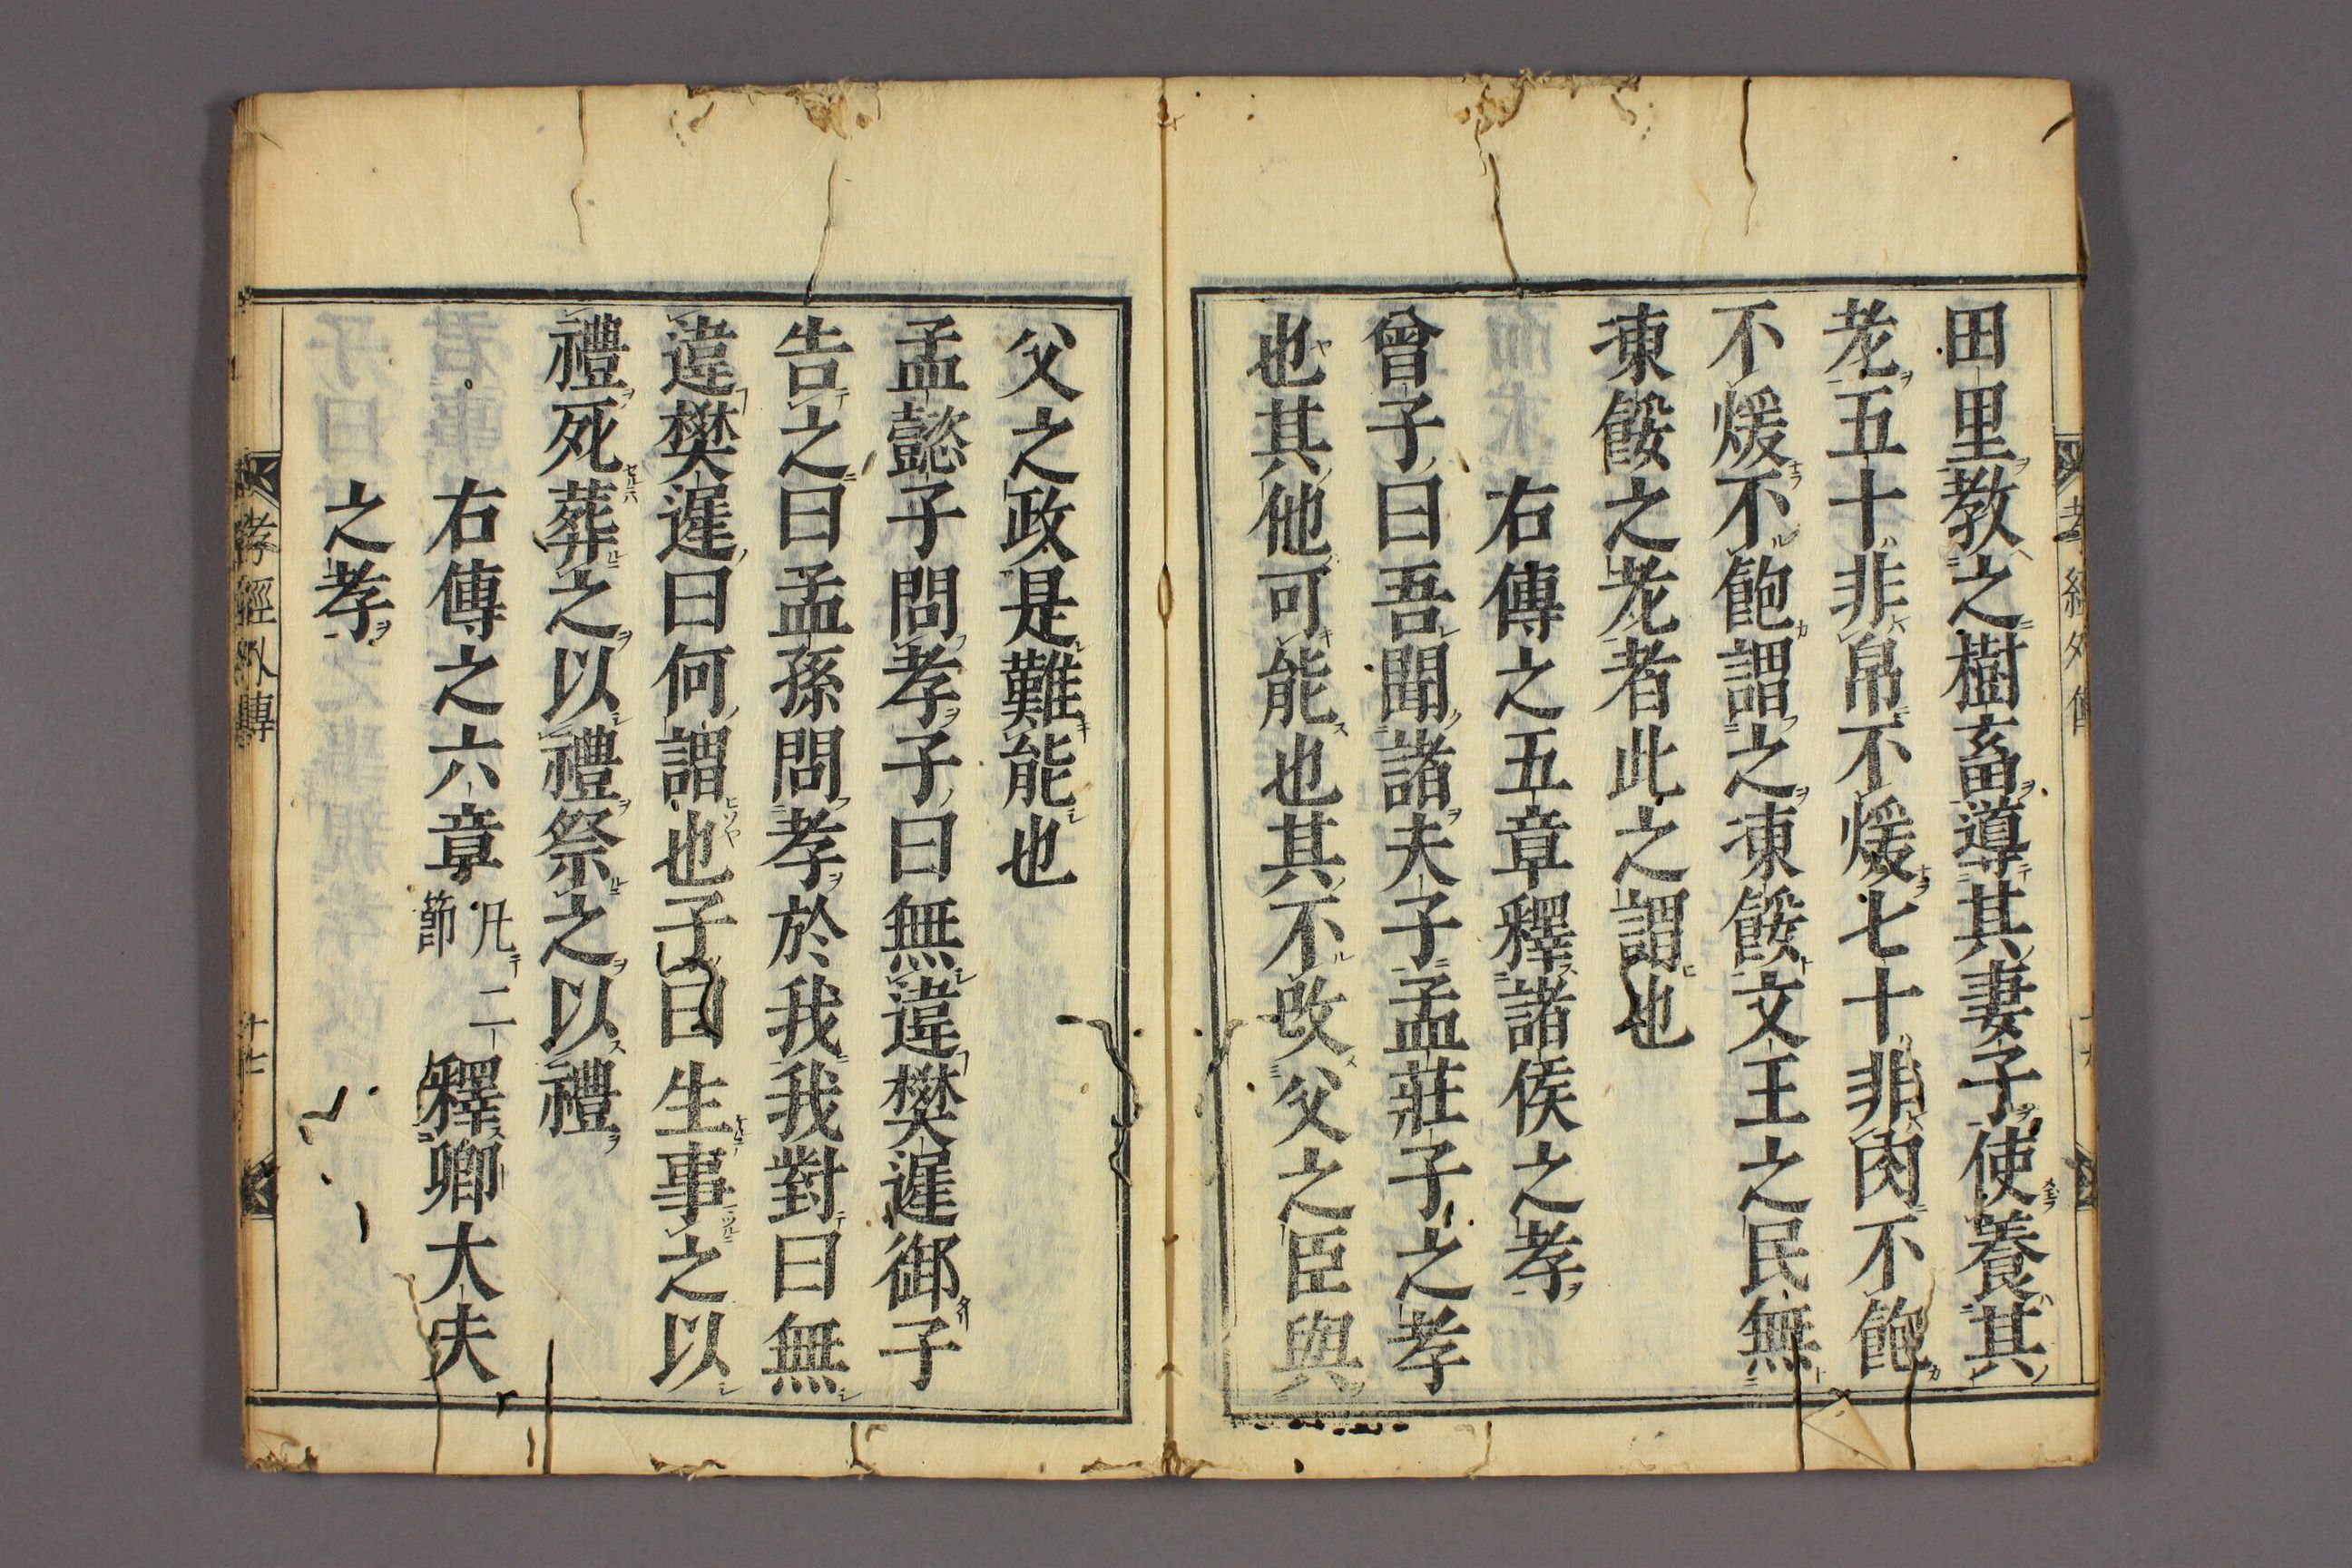 田里教之樹畜導其妻子使養其
老五十非帛不煖七十非肉不飽
不煖不飽謂之凍餒文王之民無
凍餒之老者此之謂也
右傳之五章釋諸侯之孝
曾子曰吾聞諸夫子孟莊子之孝
也其他可能也其不改父之臣與
父之政是難能也
孟懿子問孝子曰無違樊遲御子
告之曰孟孫問孝於我我對曰無
違樊遲曰何謂也子曰生事之以
禮死葬之以禮祭之以禮
右傳之六章凡二節釋卿大夫
之孝
孝經外傳